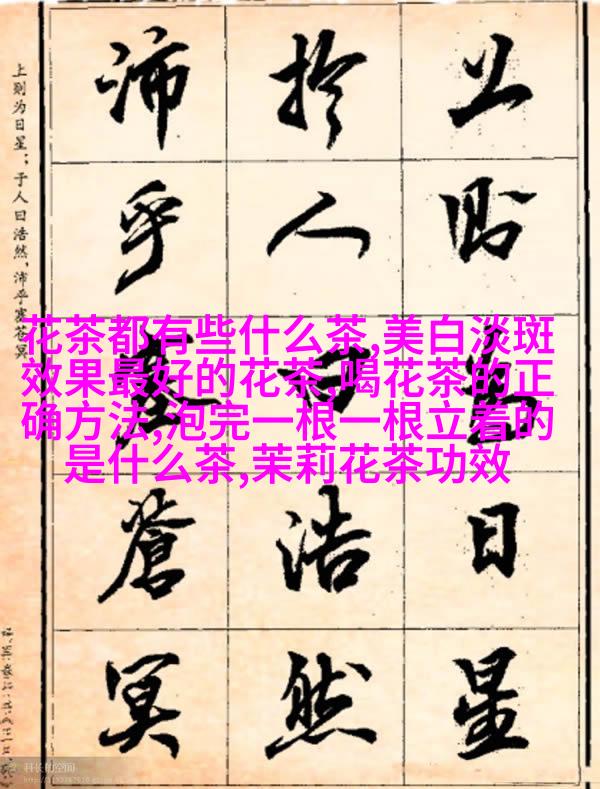 上則為日星
於人曰浩然
沛乎塞蒼冥
上则为日星；于人曰浩然，沛乎塞苍冥
花茶都有些什么茶,美白淡斑
效果最好的花茶,喝花茶的正
确方法,泡完一根一根立着的
是什么茶,茉莉花茶功效
科长的空间